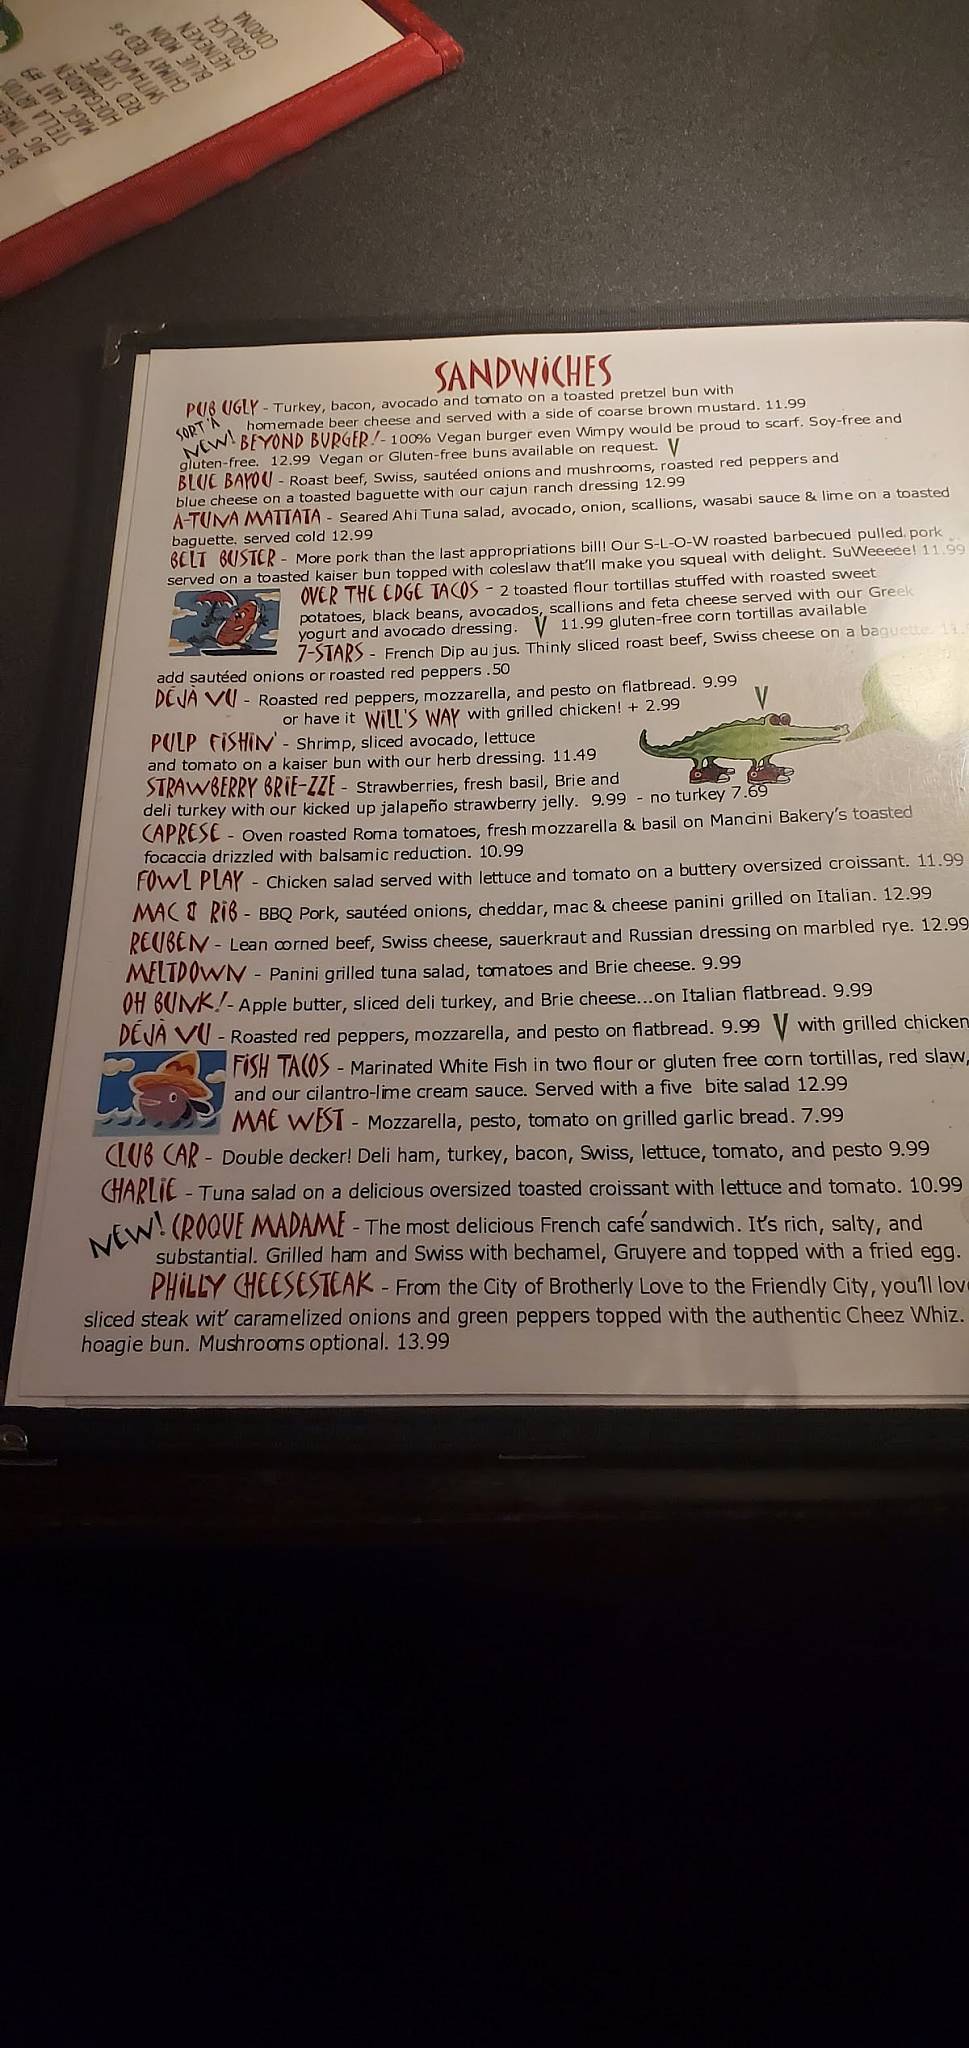 CORONA
GROLSCH
HEINEKEN
BLUE MOON
CHIMAY RED $6
SMITHWICKS
RED STRIPE
HOEGAARDEN
MAGIC HAT #9
STELLA ARTOIS
BIG
BIG
SANDWiCHES
PUB UGLY - Turkey, bacon, avocado and tomato on a toasted pretzel bun with
homemade beer cheese and served with a side of coarse brown mustard. 11.99
SORT'A
NEW! BEYOND BURGER! - 100% Vegan burger even Wimpy would be proud to scarf. Soy-free and
gluten-free. 12.99 Vegan or Gluten-free buns available on request. V
BLUE BAYOU - Roast beef, Swiss, sautéed onions and mushrooms, roasted red peppers and
blue cheese on a toasted baguette with our cajun ranch dressing 12.99
A-TUNA MATTATA - Seared Ahi Tuna salad, avocado, onion, scallions, wasabi sauce & lime on a toasted
baguette. served cold 12.99
BELT BUSTER - More pork than the last appropriations bill! Our S-L-O-W roasted barbecued pulled pork
served on a toasted kaiser bun topped with coleslaw that'll make you squeal with delight. SuWeeeee! 11.99
OVER THE EDGE TACOS - 2 toasted flour tortillas stuffed with roasted sweet
potatoes, black beans, avocados, scallions and feta cheese served with our Greek
yogurt and avocado dressing. V 11.99 gluten-free corn tortillas available
7-STARS - French Dip au jus. Thinly sliced roast beef, Swiss cheese on a baguette.
add sautéed onions or roasted red peppers .50
DÉJÀ VU - Roasted red peppers, mozzarella, and pesto on flatbread. 9.99 V
or have it WiLL'S WAY with grilled chicken! + 2.99
PULP FiSHiN' - Shrimp, sliced avocado, lettuce
and tomato on a kaiser bun with our herb dressing. 11.49
STRAWBERRY BRiE-ZZE - Strawberries, fresh basil, Brie and
deli turkey with our kicked up jalapeño strawberry jelly. 9.99 - no turkey 7.69
CAPRESE - Oven roasted Roma tomatoes, fresh mozzarella & basil on Mancini Bakery's toasted
focaccia drizzled with balsamic reduction. 10.99
FOWL PLAY - Chicken salad served with lettuce and tomato on a buttery oversized croissant. 11.99
MAC & RiB - BBQ Pork, sautéed onions, cheddar, mac & cheese panini grilled on Italian. 12.99
REUBEN - Lean corned beef, Swiss cheese, sauerkraut and Russian dressing on marbled rye. 12.99
MELTDOWN - Panini grilled tuna salad, tomatoes and Brie cheese. 9.99
OH BUNK! - Apple butter, sliced deli turkey, and Brie cheese...on Italian flatbread. 9.99
DÉJÀ VU - Roasted red peppers, mozzarella, and pesto on flatbread. 9.99 V with grilled chicken
FiSH TACOS - Marinated White Fish in two flour or gluten free corn tortillas, red slaw,
and our cilantro-lime cream sauce. Served with a five bite salad 12.99
MAE WEST - Mozzarella, pesto, tomato on grilled garlic bread. 7.99
CLUB CAR - Double decker! Deli ham, turkey, bacon, Swiss, lettuce, tomato, and pesto 9.99
CHARLiE - Tuna salad on a delicious oversized toasted croissant with lettuce and tomato. 10.99
NEW! CROQUE MADAME - The most delicious French café sandwich. It's rich, salty, and
substantial. Grilled ham and Swiss with bechamel, Gruyere and topped with a fried egg.
PHiLLY CHEESESTEAK - From the City of Brotherly Love to the Friendly City, you'll
sliced steak wit' caramelized onions and green peppers topped with the authentic Cheez Whiz.
hoagie bun. Mushrooms optional. 13.99